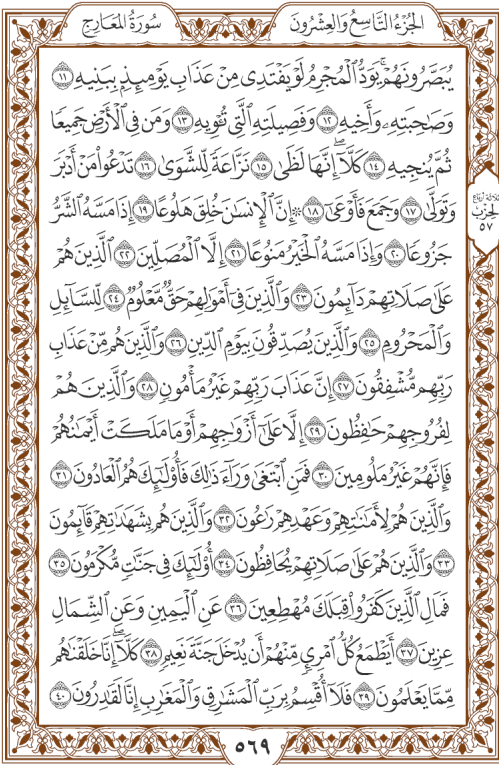 الجُزْءُ التَّاسِعُ وَالعِشْرُونَ
سُورَةُ المَعَارِجِ
يُبَصَّرُونَهُمْ ۚ يَوَدُّ ٱلْمُجْرِمُ لَوْ يَفْتَدِى مِنْ عَذَابِ يَوْمِئِذٍۭ بِبَنِيهِ ١١
وَصَٰحِبَتِهِۦ وَأَخِيهِ ١٢ وَفَصِيلَتِهِ ٱلَّتِى تُـْٔوِيهِ ١٣ وَمَن فِى ٱلْأَرْضِ جَمِيعًا
ثُمَّ يُنجِيهِ ١٤ كَلَّآ ۖ إِنَّهَا لَظَىٰ ١٥ نَزَّاعَةً لِّلشَّوَىٰ ١٦ تَدْعُوا۟ مَنْ أَدْبَرَ
وَتَوَلَّىٰ ١٧ وَجَمَعَ فَأَوْعَىٰٓ ١٨ ۞ إِنَّ ٱلْإِنسَٰنَ خُلِقَ هَلُوعًا ١٩ إِذَا مَسَّهُ ٱلشَّرُّ
ثلاثة أرباع
الحزب
٥٧
جَزُوعًا ٢٠ وَإِذَا مَسَّهُ ٱلْخَيْرُ مَنُوعًا ٢١ إِلَّا ٱلْمُصَلِّينَ ٢٢ ٱلَّذِينَ هُمْ
عَلَىٰ صَلَاتِهِمْ دَآئِمُونَ ٢٣ وَٱلَّذِينَ فِىٓ أَمْوَٰلِهِمْ حَقٌّ مَّعْلُومٌ ٢٤ لِّلسَّآئِلِ
وَٱلْمَحْرُومِ ٢٥ وَٱلَّذِينَ يُصَدِّقُونَ بِيَوْمِ ٱلدِّينِ ٢٦ وَٱلَّذِينَ هُم مِّنْ عَذَابِ
رَبِّهِم مُّشْفِقُونَ ٢٧ إِنَّ عَذَابَ رَبِّهِمْ غَيْرُ مَأْمُونٍ ٢٨ وَٱلَّذِينَ هُمْ
لِفُرُوجِهِمْ حَٰفِظُونَ ٢٩ إِلَّا عَلَىٰٓ أَزْوَٰجِهِمْ أَوْ مَا مَلَكَتْ أَيْمَٰنُهُمْ
فَإِنَّهُمْ غَيْرُ مَلُومِينَ ٣٠ فَمَنِ ٱبْتَغَىٰ وَرَآءَ ذَٰلِكَ فَأُو۟لَٰٓئِكَ هُمُ ٱلْعَادُونَ ٣١
وَٱلَّذِينَ هُمْ لِأَمَٰنَٰتِهِمْ وَعَهْدِهِمْ رَٰعُونَ ٣٢ وَٱلَّذِينَ هُم بِشَهَٰدَٰتِهِمْ قَآئِمُونَ
٣٣ وَٱلَّذِينَ هُمْ عَلَىٰ صَلَاتِهِمْ يُحَافِظُونَ ٣٤ أُو۟لَٰٓئِكَ فِى جَنَّٰتٍ مُّكْرَمُونَ ٣٥
فَمَالِ ٱلَّذِينَ كَفَرُوا۟ قِبَلَكَ مُهْطِعِينَ ٣٦ عَنِ ٱلْيَمِينِ وَعَنِ ٱلشِّمَالِ
عِزِينَ ٣٧ أَيَطْمَعُ كُلُّ ٱمْرِئٍ مِّنْهُمْ أَن يُدْخَلَ جَنَّةَ نَعِيمٍ ٣٨ كَلَّآ ۖ إِنَّا خَلَقْنَٰهُم
مِّمَّا يَعْلَمُونَ ٣٩ فَلَآ أُقْسِمُ بِرَبِّ ٱلْمَشَٰرِقِ وَٱلْمَغَٰرِبِ إِنَّا لَقَٰدِرُونَ ٤٠
٥٦٩